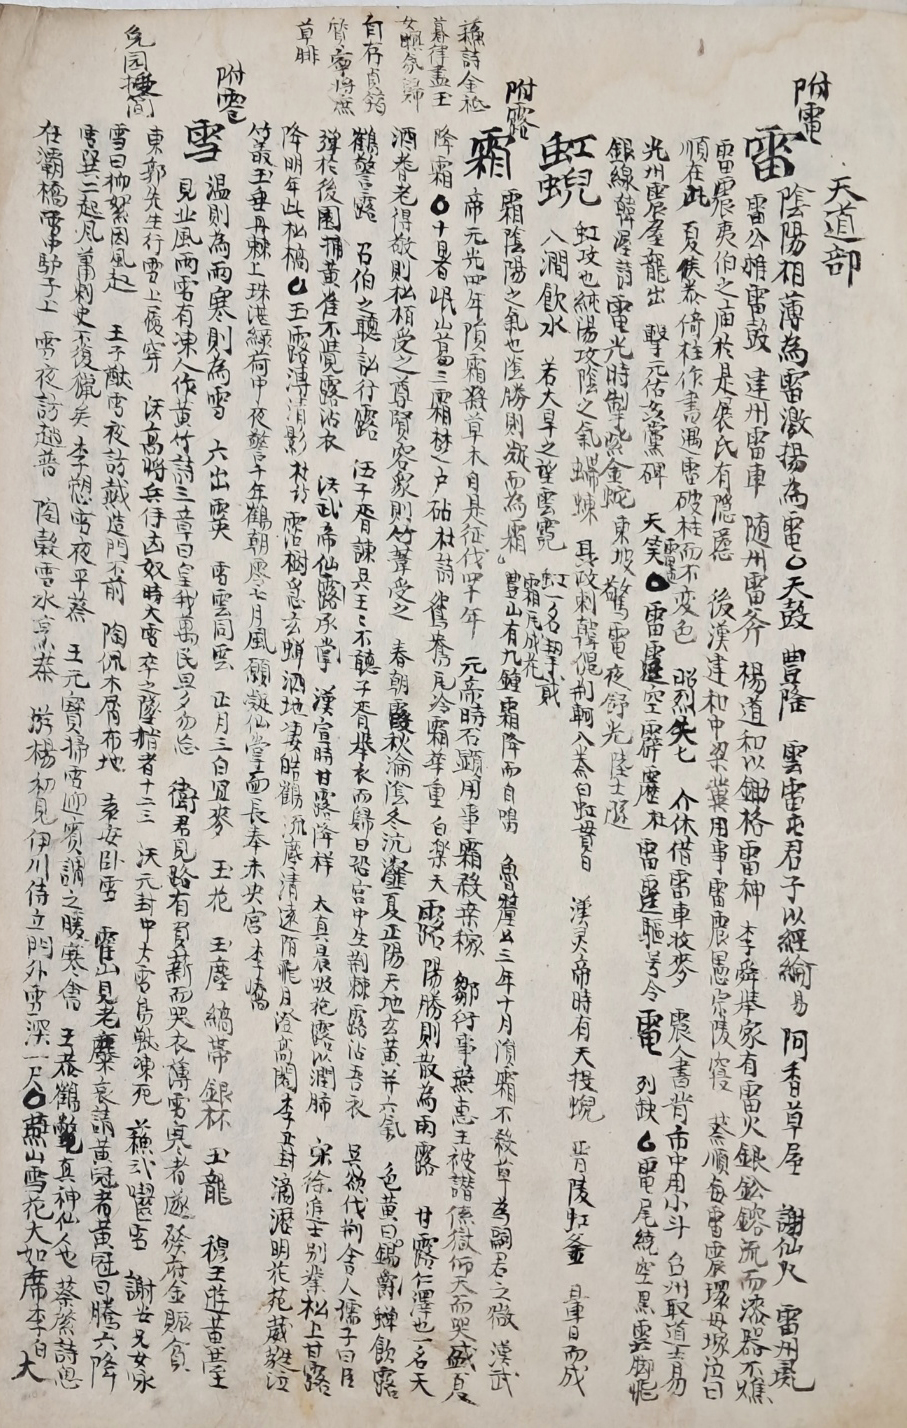 天道部
附電
雷 陰陽相薄為雷激揚為電○天鼓 豊隆 雲雷屯君子以經綸易 阿香草屋 謝仙火 雷州
雷公推雷鼓 建州雷車 随州雷斧 楊道和以鋤格雷神 李舜舉家有雷火銀鈆鎔流而漆器不燋
雷震夷伯之庙於是展氏有隠慝 後漢建和中梁兾用事雷震憲宗陵寢 蔡順每雷震環母塚泣曰
順在此 夏侯泰倚柱作書遇雷破柱而不变色 昭烈失七 介休借雷車收麥 震人書背市中用小斗 台州取道士易
光州震屋龍出 擊元佑奨黨碑 天笑 ○雷霆空霹靂杜 雷霆驅号令 電 列缺 ○電尾繞空黒雲脚
銀線韓渥詩 電光時掣紫金蛇 東坡 驚電夜舒光 陸士
虹蜺 虹攻也純陽攻陰之氣 螮蝀 聶政刺韓傀荆軻入秦白虹貫日 漢灵帝時有天投蜺 晋陵虹釜 暈日而成
入澗飲水 若大旱之望雲霓 虹一名挈貳
附露
霜 霜陰陽之氣也陰勝則凝而為霜 豊山有九鐘霜降而自鳴 魯釐公三年十月隕霜不殺草為嗣君之微 漢武
帝元光四年隕霜殺草木自是征伐四十年 元帝時石顕用事霜殺桒稼 鄒衍事燕惠王被譖係獄仰天而哭盛夏
降霜○十月者 岷山葛三霜 楚户砧杜詩 鴛鴦瓦冷霜華重白楽天 露 陽勝則散為雨露 甘露仁澤也一名天
酒耆老得敬則松柏受之尊賢容衆則竹葦受之 春朝霞秋淪陰冬沆瀣夏正陽天地玄黄并六氣 色黄曰 蟬飲露
鶴警露 召伯之聽訟行露 伍子胥諫吳王王不聽子胥舉衣而歸曰恐宫中生荆棘露沾吾衣 吳欲伐荆舍人孺子曰臣
弹於後園捕黄雀不覚露沾衣 漢武帝仙露承掌 漢宣時甘露降祥 太真晨吸花露以潤肺 宋徐進士别業松上甘露
降明年此松槁○玉露漙清影杜詩 露
竹叢玉垂丹棘上珠湛緑荷中夜警千年鶴朝零七月風願凝仙掌面長奉未央宮李嶠
蘇詩金衹
暮律盡玉
女暁氛歸
自存貞筠
管寧將蔗
草腓
附雹
雪 温則為雨寒則為雪 六出雲英 雪雲同雲 正月三白宜麥 玉花 玉塵 縞帯銀杯 玉龍 穆王遊黄臺
見北風雨雪有凍人作黄竹詩三章曰皇我萬民旦夕勿忘 衛君見路有負薪而哭衣薄雪寒者遂發府金賑貧
東郭先生行雪上履穿 漢高將兵伐匈奴時大雪卒之墜指者十二三 漢元封中大雪鳥獣凍死 蘇武囓雪 謝安兄女咏
雪曰柳絮因風起 王子猷雪夜訪戴造門不前 陶侃木屑布地 袁安卧雪 霍山見老麋哀請黄冠者黄冠曰騰六降
雪巽二起風蕭刺史不復獵矣 李愬雪夜平蔡 王元寳掃雪迎賓謂之暖寒會 王恭鶴氅真神仙也 蔡 詩思
在灞橋雪中驴子上 雪夜訪趙普 陶穀雪水烹茶 游楊初見伊川侍立門外雪深一尺○燕山雪花大如席李白 大
兔园 简